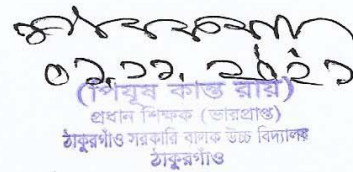 ০১.১১.২০২১
(পিযূষ কান্ত রায়)
প্রধান শিক্ষক (ভারপ্রাপ্ত)
ঠাকুরগাঁও সরকারি বালক উচ্চ বিদ্যালয়
ঠাকুরগাঁও